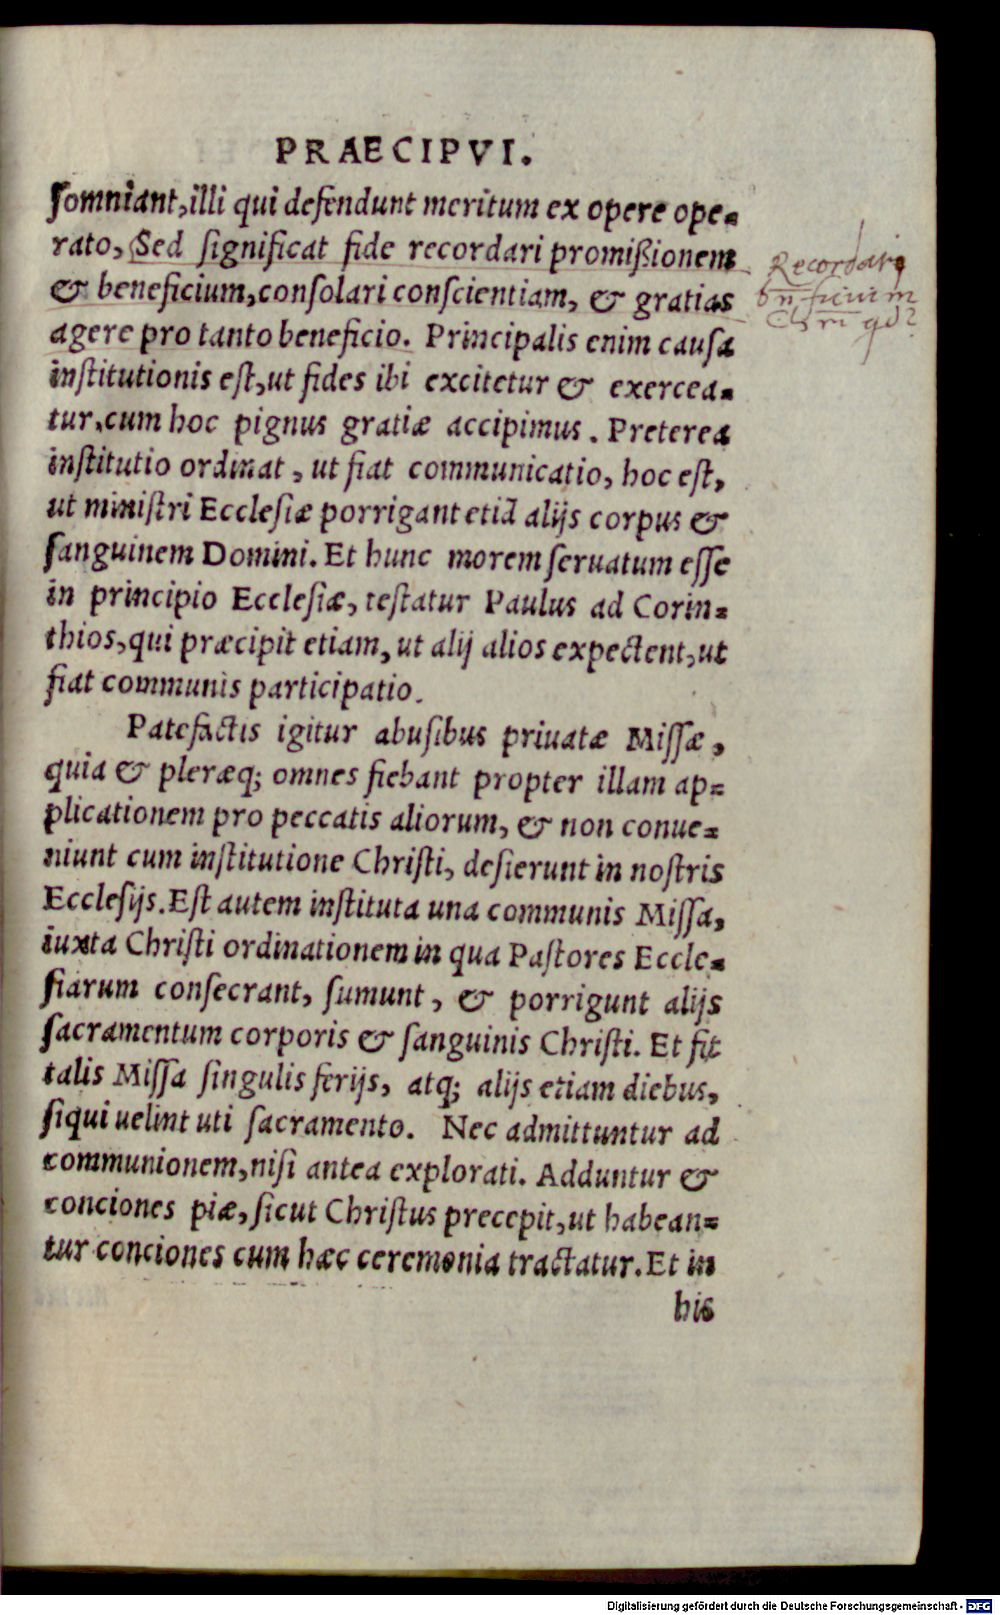 PRAECIPVI.
ſomniant, illi qui defendunt meritum ex opere ope=
rato, Sed ſignificat fide recordari promißionem
& beneficium, conſolari conſcientiam, & gratias
agere pro tanto beneficio. Principalis enim cauſa
inſtitutionis eſt, ut fides ibi excitetur & exercea=
tur, cum hoc pignus gratiæ accipimus. Preterea
inſtitutio ordinat, ut fiat communicatio, hoc eſt,
ut miniſtri Eccleſiæ porrigant etiā alijs corpus &
ſanguinem Domini. Et hunc morem ſeruatum eſſe
in principio Eccleſiæ, teſtatur Paulus ad Corin=
thios, qui præcipit etiam, ut alij alios expectent, ut
fiat communis participatio.
Patefactis igitur abuſibus priuatæ Miſſæ,
quia & pleræq; omnes fiebant propter illam ap=
plicationem pro peccatis aliorum, & non conue=
niunt cum inſtitutione Chriſti, deſierunt in noſtris
Eccleſijs. Eſt autem inſtituta una communis Miſſa,
iuxta Chriſti ordinationem in qua Paſtores Eccle=
ſiarum conſecrant, ſumunt, & porrigunt alijs
ſacramentum corporis & ſanguinis Chriſti. Et fit
talis Miſſa ſingulis ferijs, atq; alijs etiam diebus,
ſiqui uelint uti ſacramento. Nec admittuntur ad
communionem, niſi antea explorati. Adduntur &
conciones piæ, ſicut Chriſtus precepit, ut habean=
tur conciones cum hæc ceremonia tractatur. Et in
his
Recordari
Digitalisierung gefördert durch die Deutsche Forschungsgemeinschaft - DFG